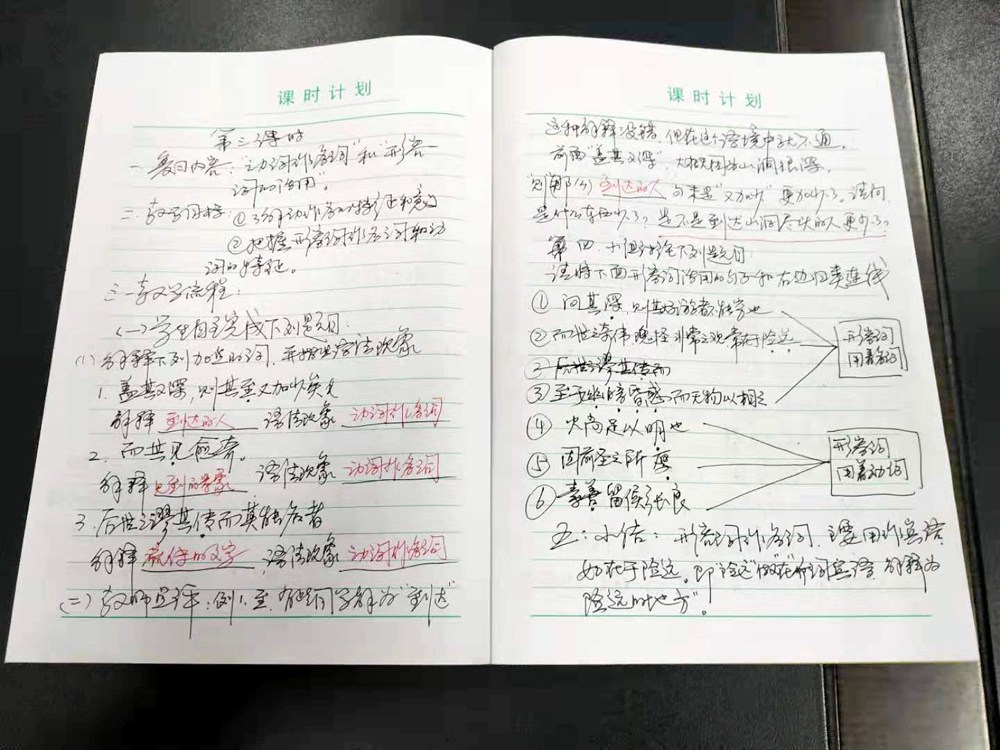 课时计划
第三课时
一、复习内容："动词作名词"和"形容
词的活用"。
二、教学目标：①了解动作名的特征和意义
②把握形容词作名词和动
词的特征。
三、教学流程：
(一)学生自主完成下列题目：
(1)解释下列加点的词，并指出语法现象
1.盖其又深，则其至又加少矣
解释 到达的人 语法现象 动词作名词
2.而其见愈奇。
解释 见到的景象 语法现象 动词作名词
3.后世之谬其传而莫能名者
解释 流传的文字 语法现象 动词作名词
(二)教师点评：例1.至，有些同学解为"到达"
课时计划
这种解释没错，但在这个语境中就不通，
前面"盖其又深"，大概因为山洞很深，
"则那(个)到达的人 句末是"又加少"更加少了，请问
是什么东西少了？是不是到达山洞尽头的人更少了？
第四、小组讨论下列题目：
请将下面形容词活用的句子和右边归类连线
① 问其深，则其好游者不能穷也
② 而世之奇伟瑰怪非常之观常在于险远
② 后世之谬其传而
③ 至于幽暗昏惑而无物以相之
④ 火尚足以明也
⑤ 固前圣之所
⑥ 素善留侯张良
形容词
用着名词
形容词
用着动词
五：小结：形容词作名词，主要用作宾语，
如在于险远，即"险远"做"在"介词宾语，解释为
险远的地方"。